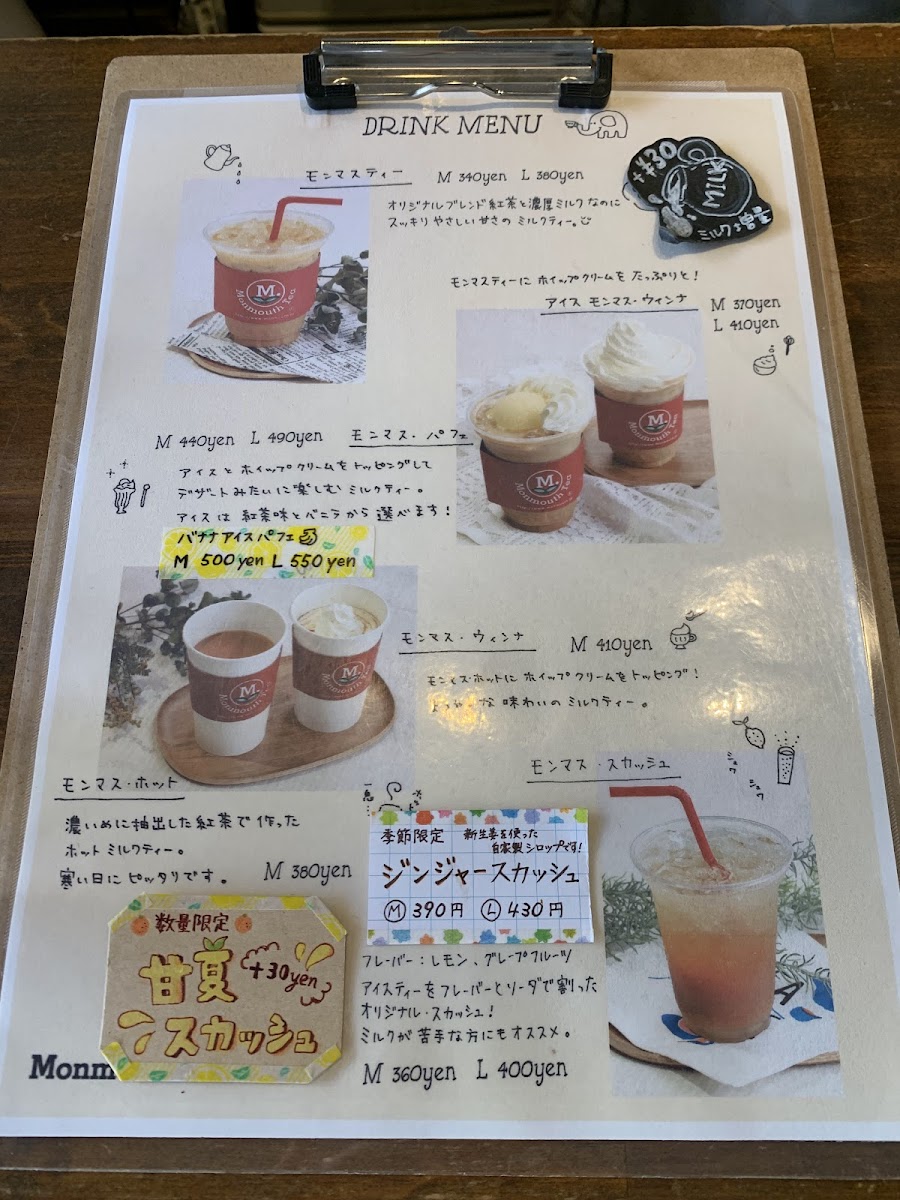 DRINK MENU
モンマスティー M 340yen L 380yen
オリジナルブレンド紅茶と濃厚ミルクなのに
スッキリやさしい甘さのミルクティー。
+¥30
MILK
ミルク増量
M.
Monmouth Tea
モンマスティーにホイップクリームをたっぷりと!
アイス モンマス・ウィンナ M 370yen
L 410yen
M.
Monmouth Tea
M.
Monmouth Tea
M 440yen L 490yen モンマス・パフェ
アイスとホイップクリームをトッピングして
デザートみたいに楽しむミルクティー。
アイスは紅茶味とバニラから選べます!
バナナアイスパフェ
M 500yen L 550yen
M.
Monmouth Tea
M.
Monmouth Tea
モンマス・ウィンナ M 410yen
モンマス・ホットにホイップクリームをトッピング!
味わいのミルクティー。
モンマス・ホット
濃いめに抽出した紅茶で作った
ホットミルクティー。
寒い日にピッタリです。 M 380yen
モンマス・スカッシュ
ジュワ
ジュワ
季節限定 新生姜を使った
自家製シロップです!
ジンジャースカッシュ
M 390円 L 430円
フレーバー:レモン、グレープフルーツ
アイスティーをフレーバーとソーダで割った
オリジナル・スカッシュ!
ミルクが苦手な方にもオススメ。
M 360yen L 400yen
数量限定
甘夏 +30yen
スカッシュ
Monm